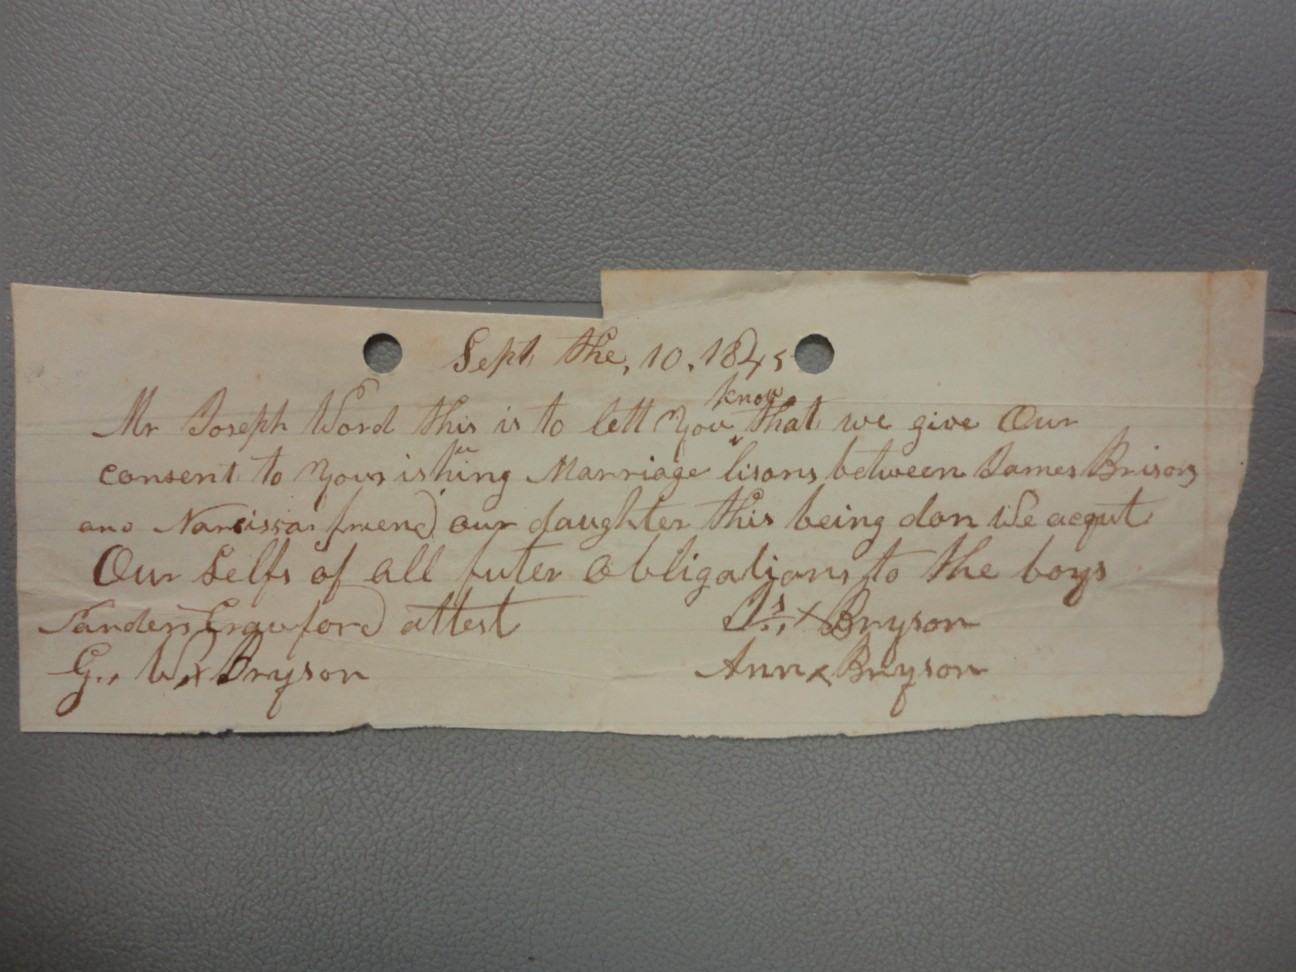 Sept the, 10. 1845
know
Mr Joseph Word this is to lett you that we give Our
consent to your ishuing Marriage lisons between James Brison
and Narcissa friend our daughter this being don We acqut
Our Selfs of all futer obligations to the boys
Sanders Crawford attest Js., x Bryson
G., W, x Bryson Ann x Bryson